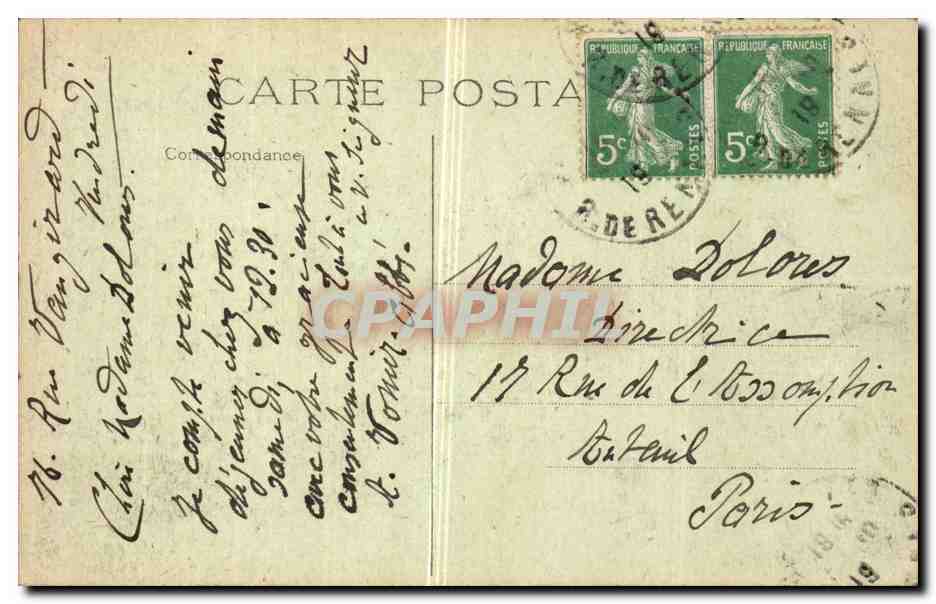 CARTE POSTA
Correspondance
76. Rue Vaugirard
Vendredi
Chère Madame Dolores.
Je compte venir
déjeuner chez vous demain
samedi à 12.30
avec votre gracieuse
consentement. Tout à vous
en N. Seigneur
A. Vonier Abbé.
Madame Dolores
Directrice
17 Rue de l'Assomption
Auteuil
Paris
REPUBLIQUE FRANÇAISE
5c
POSTES
REPUBLIQUE FRANÇAISE
5c
POSTES
R. DE REN
CPARHIL